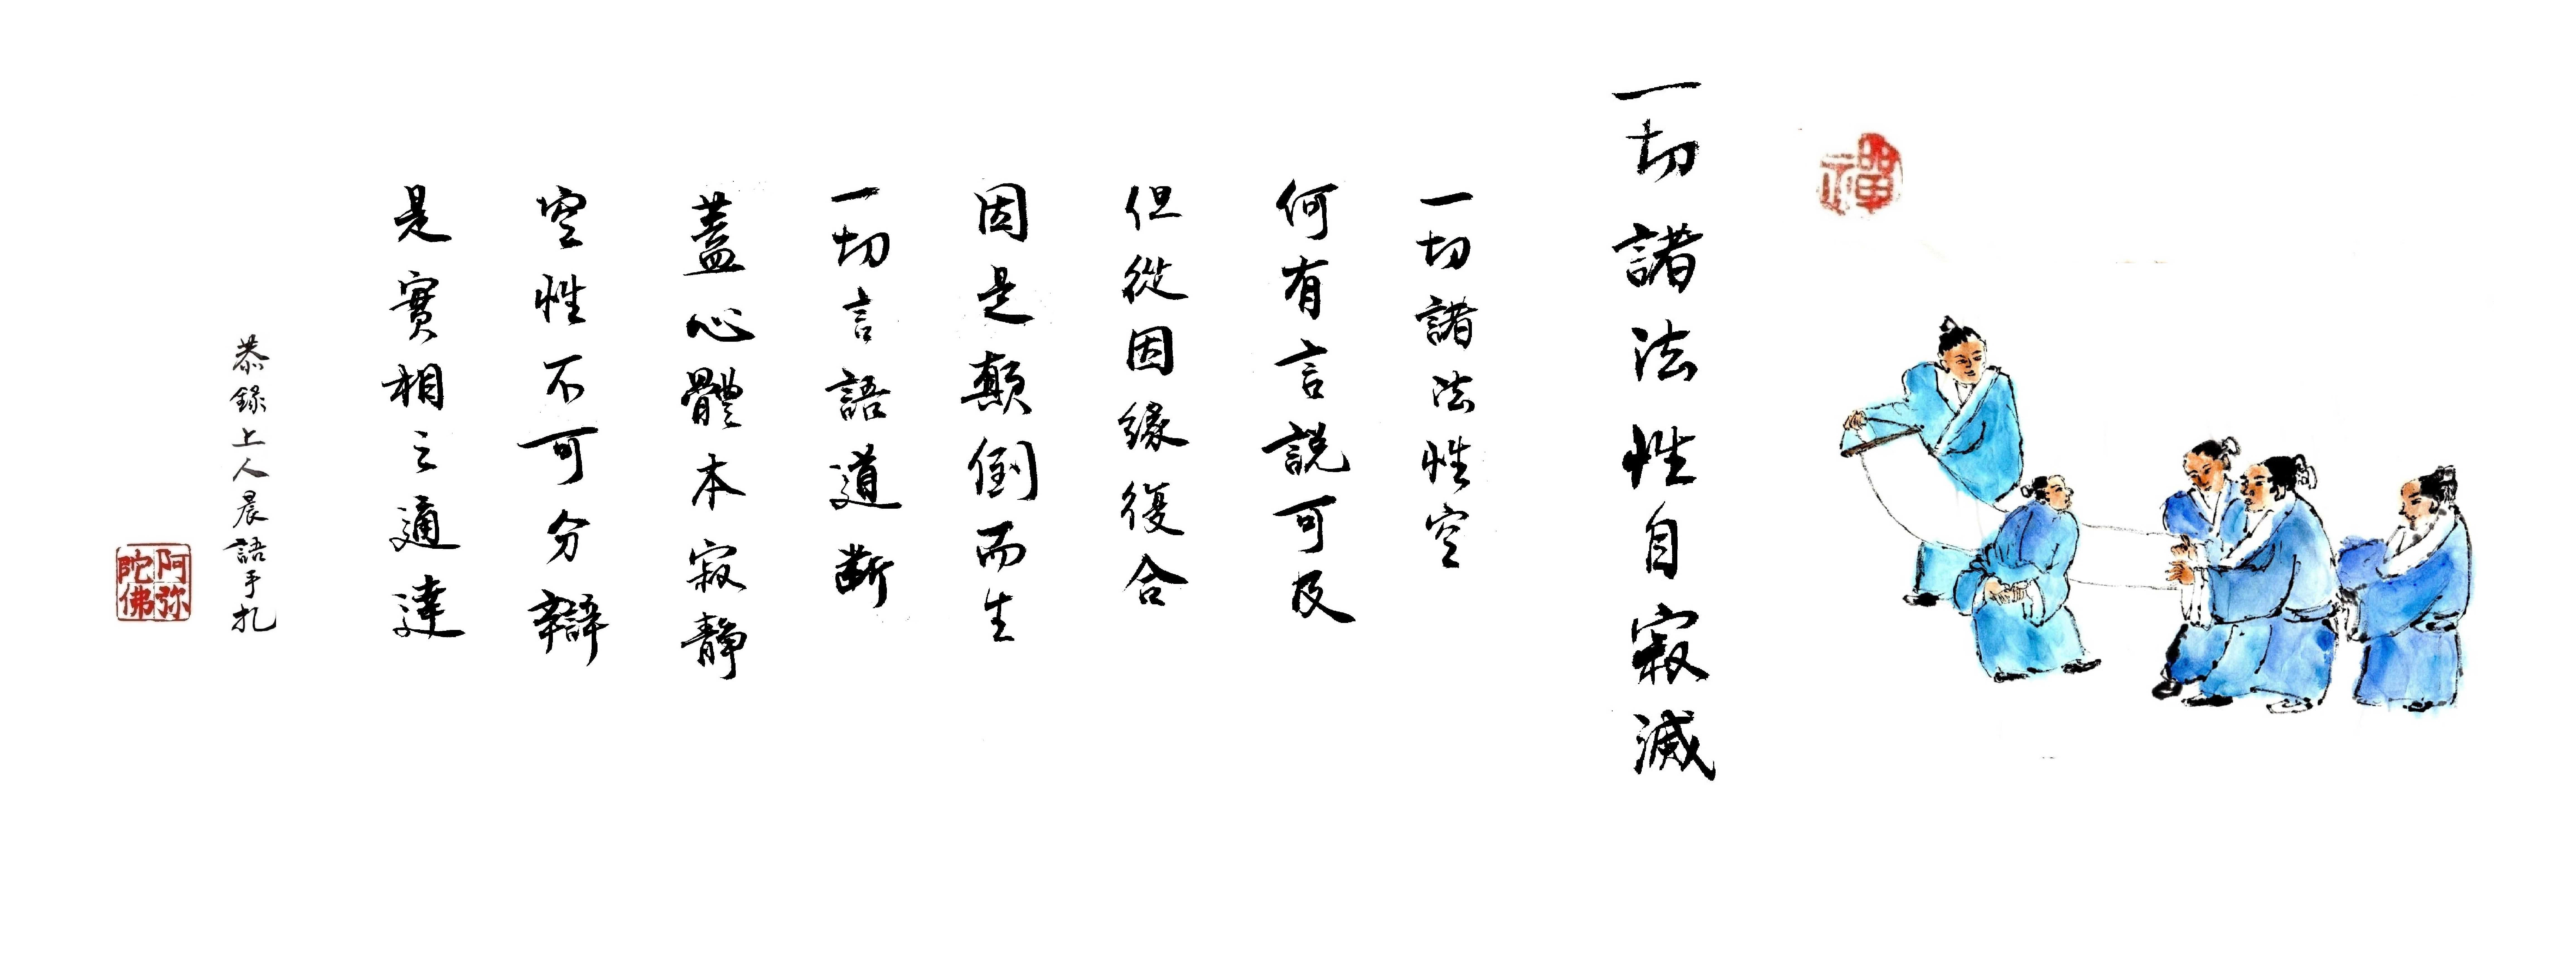 禪
一切諸法性自寂滅
一切諸法性空
何有言說可及
但從因緣復合
因是顛倒而生
一切言語道斷
蓋心體本寂靜
空性不可分辯
是實相之通達
恭錄上人晨語手扎
阿弥陀佛